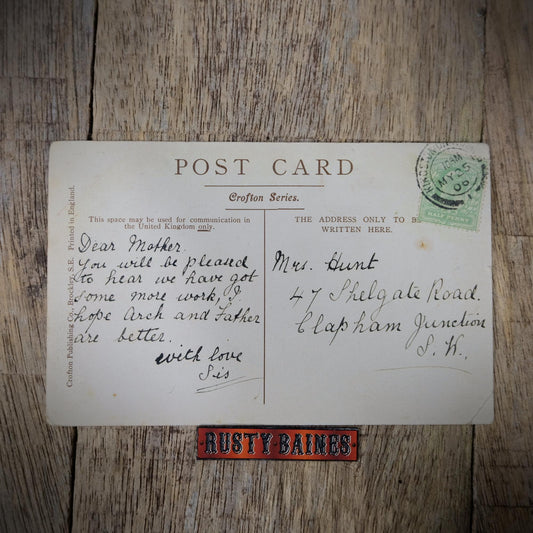 POST CARD
Crofton Series.
This space may be used for communication in
the United Kingdom only.
THE ADDRESS ONLY TO BE
WRITTEN HERE.
Crofton Publishing Co., Brockley, S.E. Printed in England.
Dear Mother.
You will be pleased
to hear we have got
some more work, I
hope Arch and Father
are better.
with love
Sis
Mrs. Hunt
47 Shelgate Road.
Clapham Junction
S. W.,
MY 25
06
HALF PENNY
RUSTY BAINES